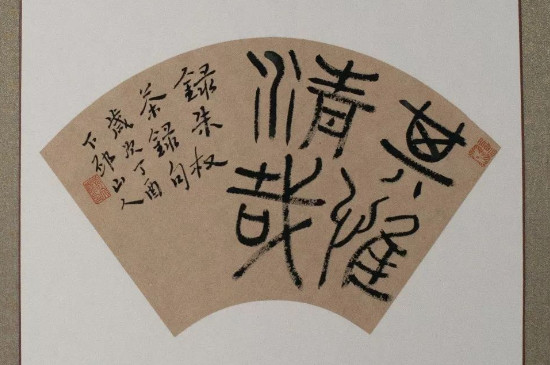 其維
清哉
錄朱权
茶錄句
歲次丁酉
下邳山人